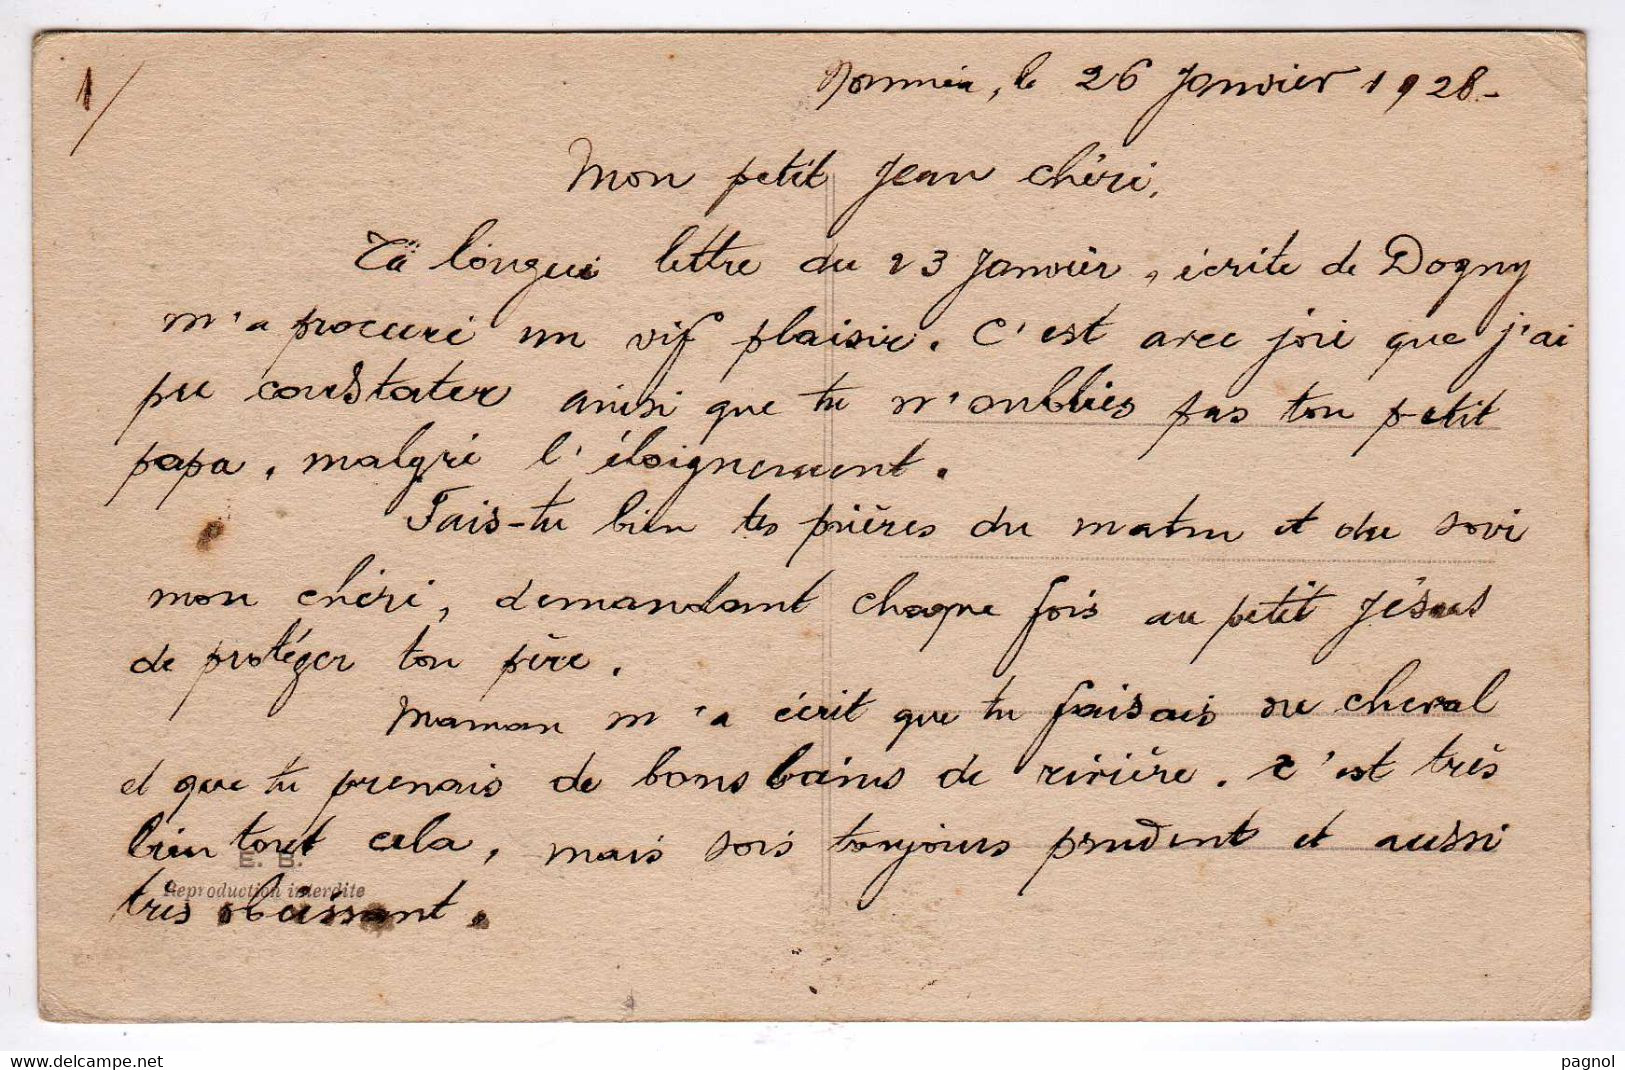 1/
Nouméa, le 26 Janvier 1928.-
Mon petit Jean chéri,
Ta longue lettre du 23 Janvier, écrite de Dogny
m'a procuré un vif plaisir. C'est avec joie que j'ai
pu constater ainsi que tu n'oublies pas ton petit
papa, malgré l'éloignement.
Fais-tu bien tes prières du matin et du soir
mon chéri, demandant chaque fois au petit Jésus
de protéger ton père.
Maman m'a écrit que tu faisais du cheval
et que tu prenais de bons bains de rivière. C'est très
bien tout cela, mais sois toujours prudent et aussi
E. B.
Reproduction interdite
très obéissant.
www.delcampe.net
pagnol